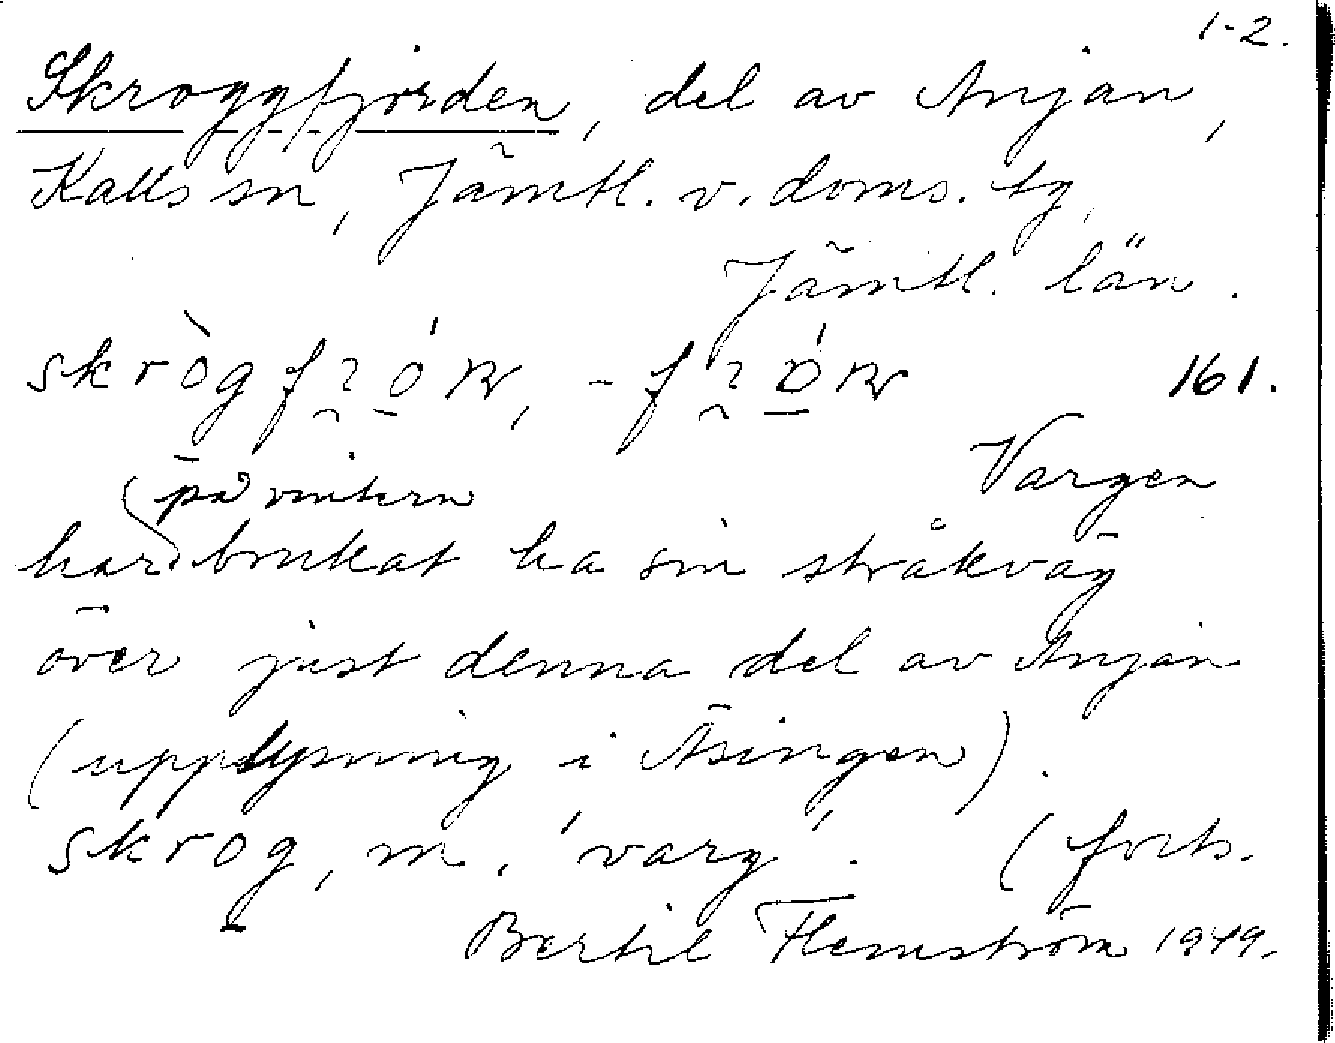 1-2.
Skroggfjorden, del av Anjan,
Kalls sn, Jämtl. v. doms. tg,
Jämtl. län.
161.
Vargen
på vintern
har brukat ha sin stråkväg
över just denna del av Anjan
(upplysning i Äsingen).
skrog, m. 'varg'. (forts.
Bertil Flemström 1949.